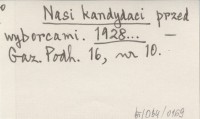 Nasi kandydaci przed
wyborcami. 1928... —
Gaz. Podh. 16, nr 10.